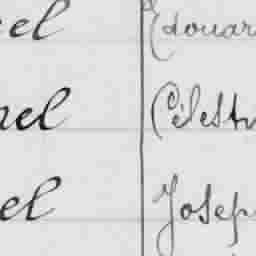 eel Edouar
nel Célest
el Josep